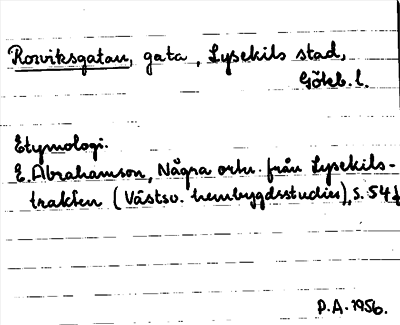 Rorviksgatan, gata, Lysekils stad,
Göteb. l.
Etymologi.
E. Abrahamson, Några ortn. från Lysekils-
trakten (Västsv. hembygdsstudier), s. 54 f
P.A. 1956.